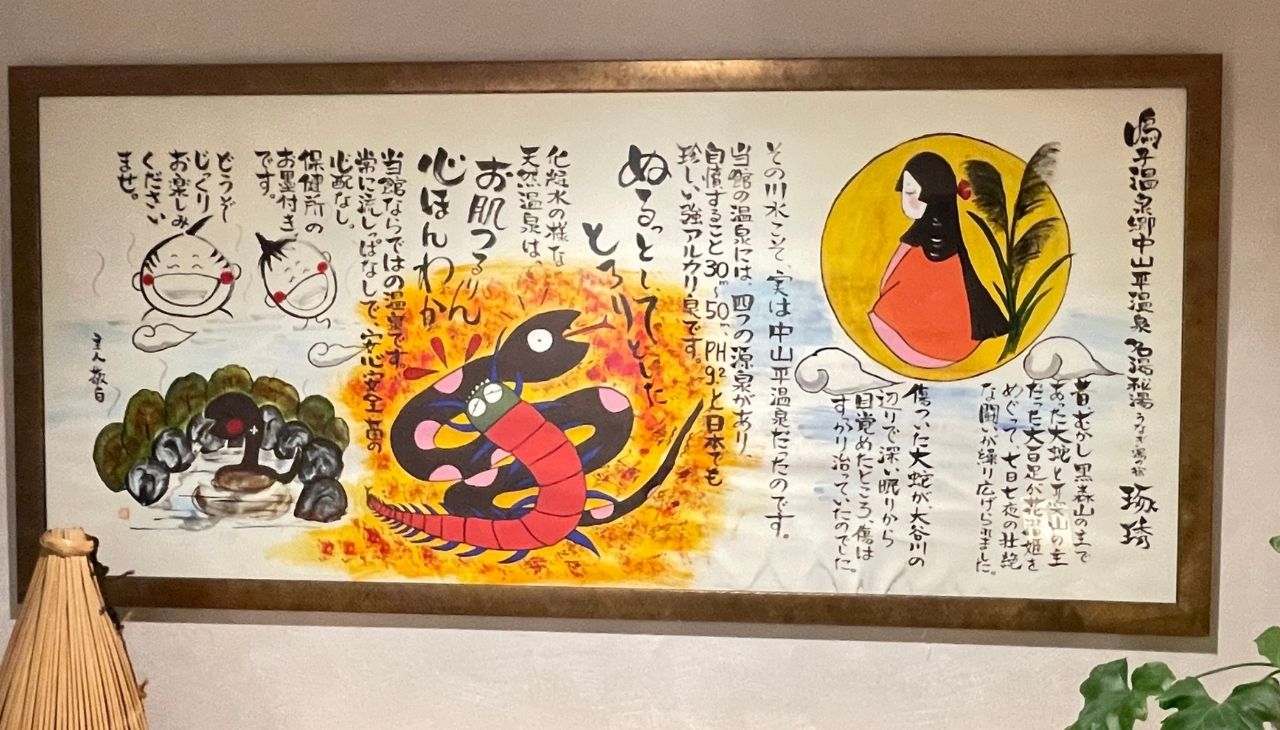 鳴子温泉郷中山平温泉 名湯秘湯 うなぎ湯の宿 琢琇
昔むかし黒森山の主で
あった大蛇と荒雄山の主
だった大百足が花渕姫を
めぐって、七日七夜の壮絶
な闘いが繰り広げられました。
傷ついた大蛇が、大谷川の
辺りで深い眠りから
目覚めたところ、傷は
すっかり治っていたのでした。
その川水こそ、実は中山平温泉だったのです。
当館の温泉には、四つの源泉があり、
自憤すること30m〜50m、PH9.2と日本でも
珍しい強アルカリ泉です。
ぬるっとして、
とろりとした
化粧水の様な
天然温泉は、
お肌つるりん
心ほんわか
当館ならではの温泉です。
常に流しっぱなしで、安心安全菌の
心配なし。
保健所の
お墨付き
です。
どうぞ
じっくり
お楽しみ
ください
ませ。
主人敬白